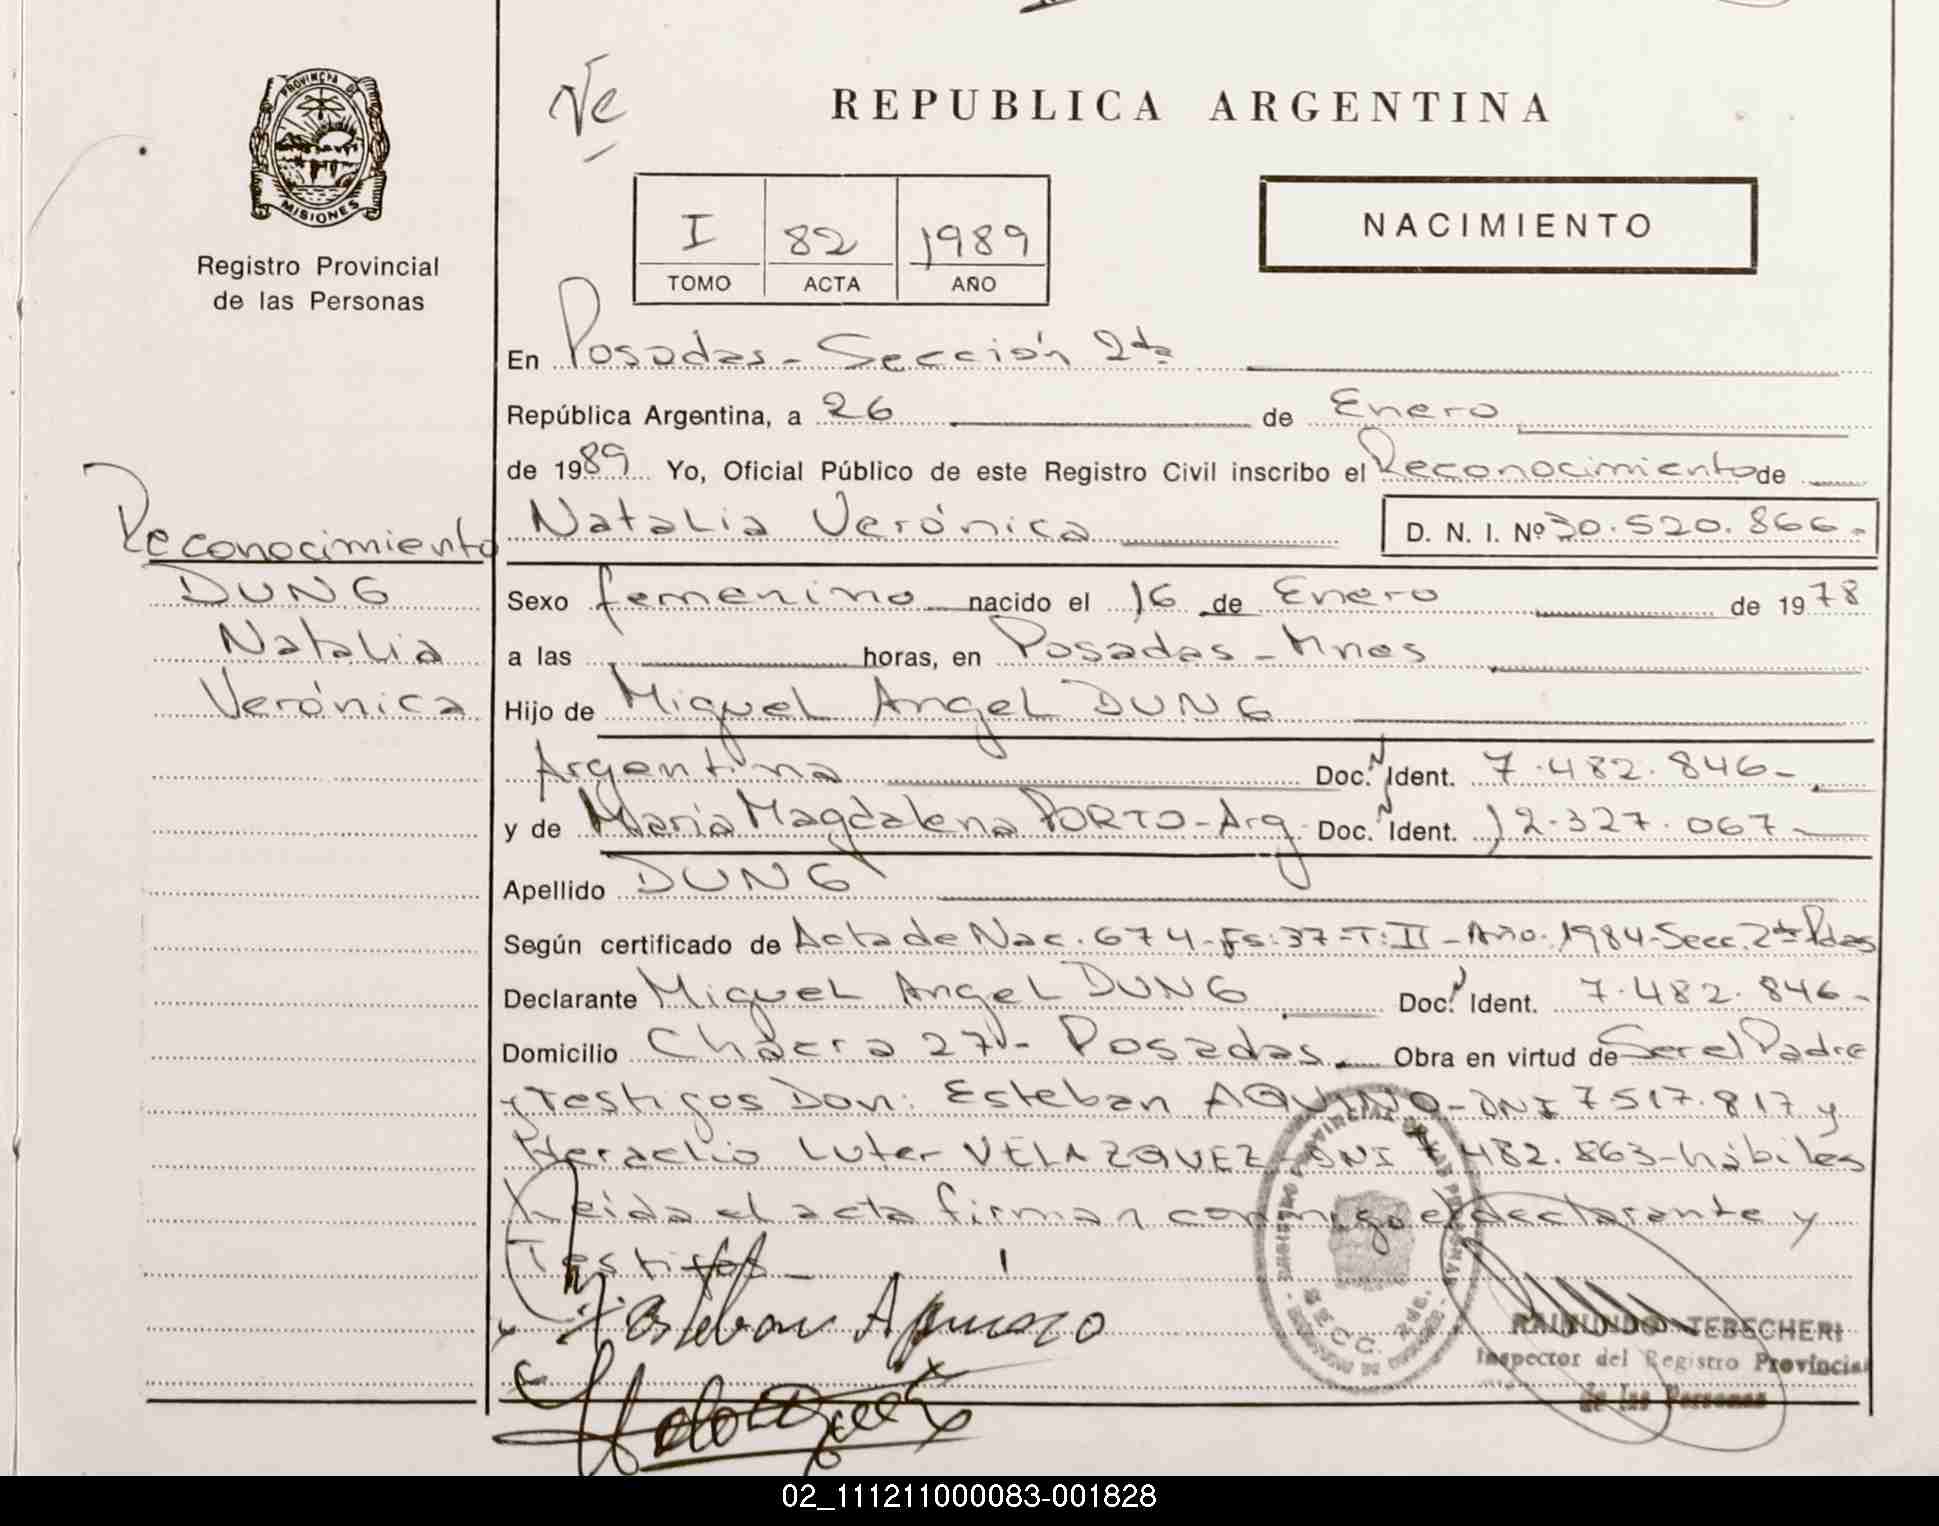 PROVINCIA DE
MISIONES
Registro Provincial
de las Personas
REPUBLICA ARGENTINA
NACIMIENTO
I 82 1989
TOMO ACTA AÑO
En Posadas - Sección 2da
República Argentina, a 26 de Enero
de 1989 Yo, Oficial Público de este Registro Civil inscribo el Reconocimiento de
Natalia Verónica D. N. I. Nº 30.520.866-
Reconocimiento
DUNG
Natalia
Verónica
Sexo femenino nacido el 16 de Enero de 1978
a las horas, en Posadas - Mnes
Hijo de Miguel Angel DUNG
Argentina Doc. Ident. 7.482.846-
y de María Magdalena PORTO - Arg. Doc. Ident. 12.327.067-
Apellido DUNG
Según certificado de Acta de Nac. 674-Fs:37-T:II-Año:1984-Secc. 2da Pdas
Declarante Miguel Angel DUNG Doc. Ident. 7.482.846-
Domicilio Chacra 27 - Posadas. Obra en virtud de Ser el Padre
y Testigos Don: Esteban AQUINO - DNI 7517.817 y
Heraclio Luter VELAZQUEZ DNI 7482.863-hábiles
Leída el acta firman conmigo el declarante y
Testigos -
Esteban Aquino
SECC. 2da.
RAIMUNDO TEBECHERI
Inspector del Registro Provincial
de las Personas
02_111211000083-001828